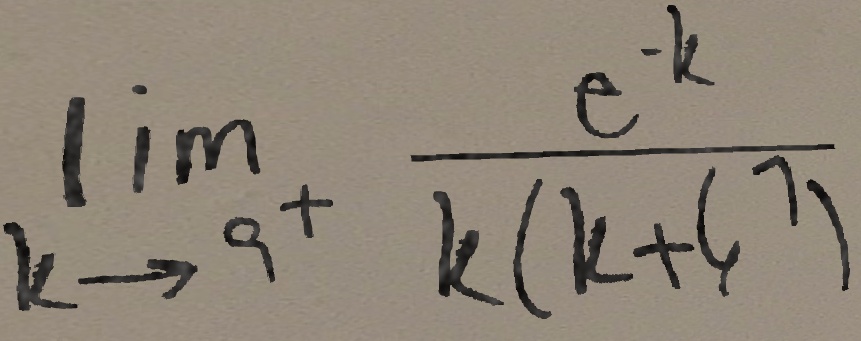 \lim_{k \to 9^+} \frac{e^{-k}}{k(k+47)}